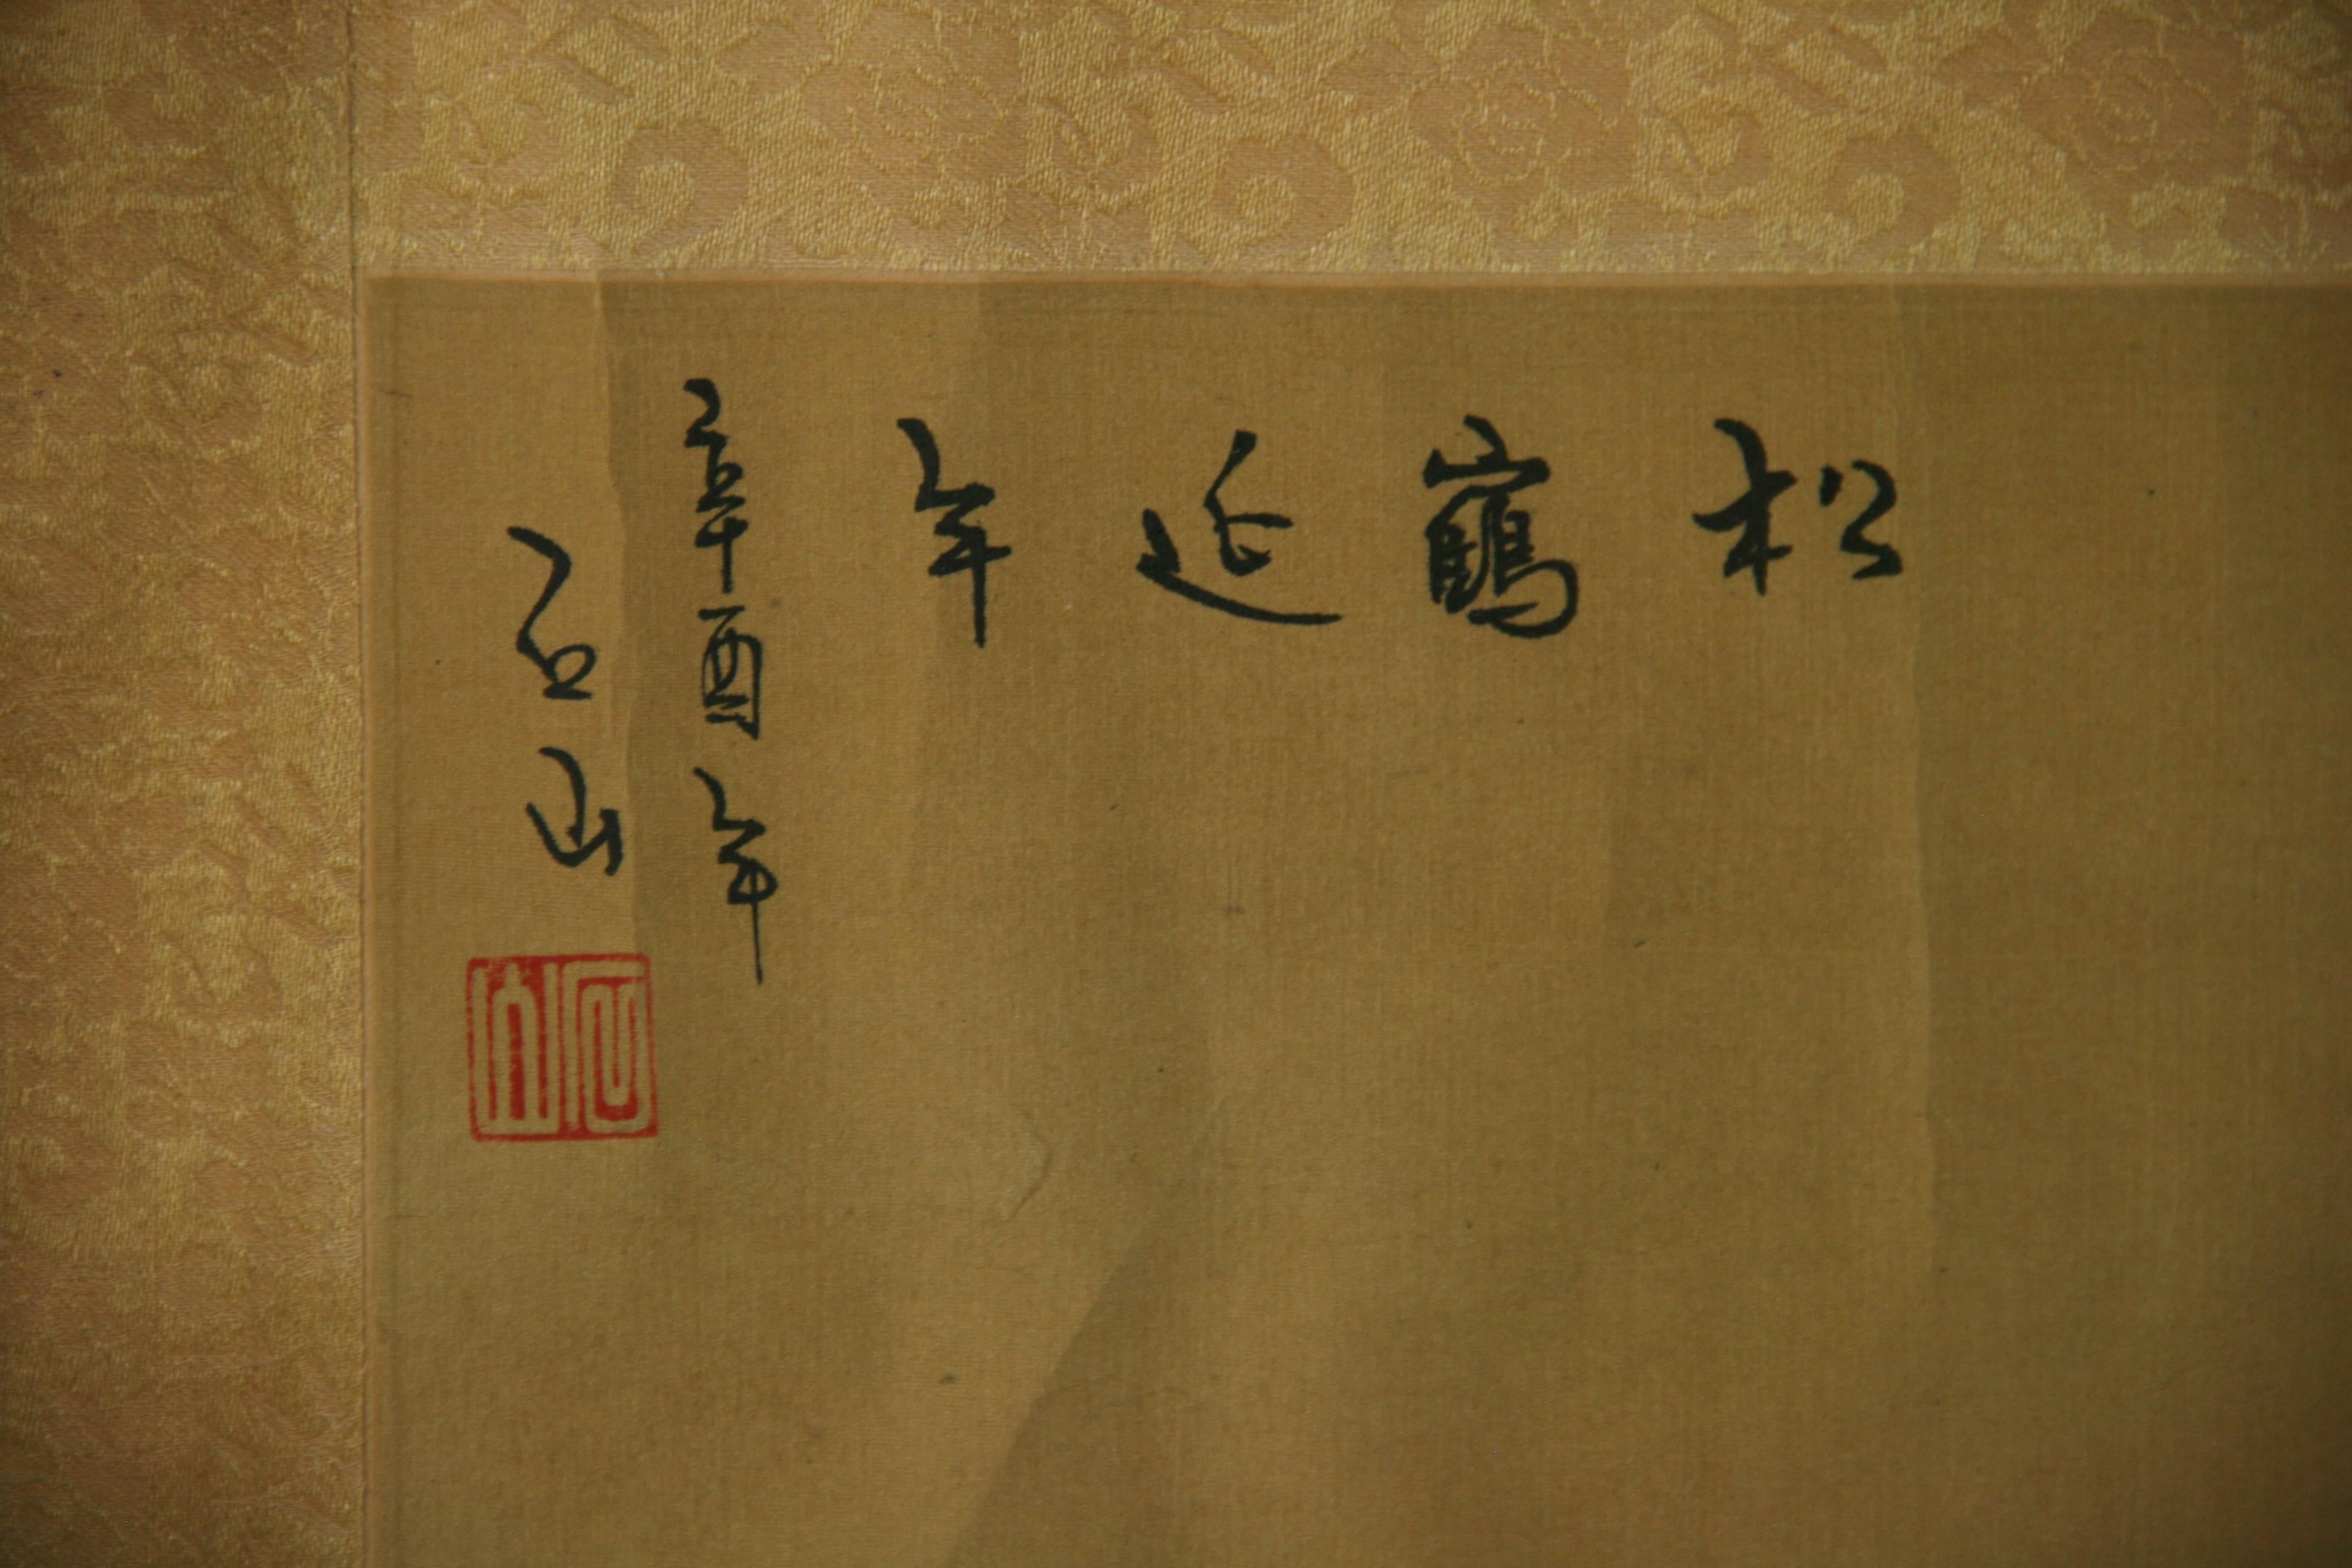 松鶴延年
辛酉年
石山
石山